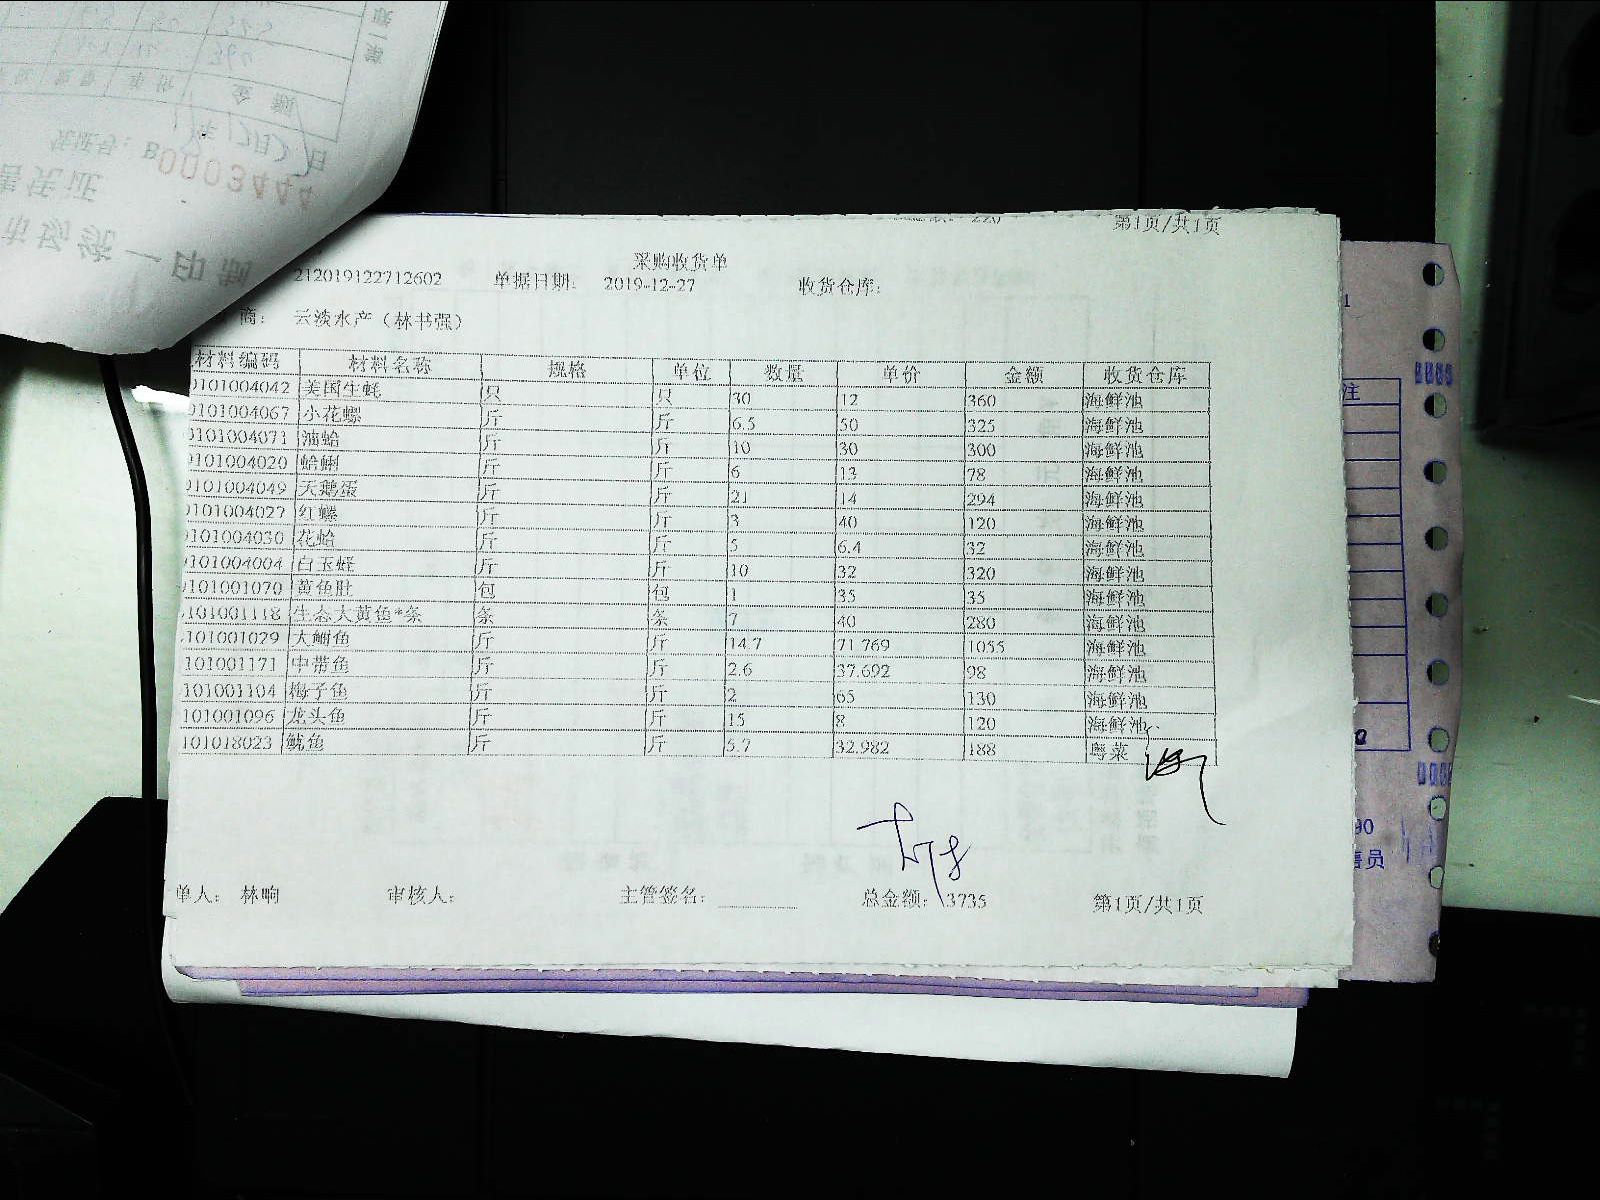 第1页/共1页
采购收货单
212019122712602 单据日期: 2019-12-27 收货仓库:
商: 云淡水产（林书强）
材料编码 材料名称 规格 单位 数量 单价 金额 收货仓库
0101004042 美国生蚝 只 只 30 12 360 海鲜池
0101004067 小花螺 斤 斤 6.5 50 325 海鲜池
0101004071 油蛤 斤 斤 10 30 300 海鲜池
0101004020 蛤蜊 斤 斤 6 13 78 海鲜池
0101004049 天鹅蛋 斤 斤 21 14 294 海鲜池
0101004027 红螺 斤 斤 3 40 120 海鲜池
0101004030 花蛤 斤 斤 5 6.4 32 海鲜池
0101004004 白玉蛏 斤 斤 10 32 320 海鲜池
0101001070 黄鱼肚 包 包 1 35 35 海鲜池
101001118 生态大黄鱼*条 条 条 7 40 280 海鲜池
101001029 大鲳鱼 斤 斤 14.7 71.769 1055 海鲜池
101001171 中带鱼 斤 斤 2.6 37.692 98 海鲜池
101001104 梅子鱼 斤 斤 2 65 130 海鲜池
101001096 龙头鱼 斤 斤 15 8 120 海鲜池
101018023 鱿鱼 斤 斤 5.7 32.982 188 粤菜
单人: 林晌 审核人: 主管签名: 总金额: 3735 第1页/共1页
市场统一印制
凭证号: B0003444
金额
注
90
售员